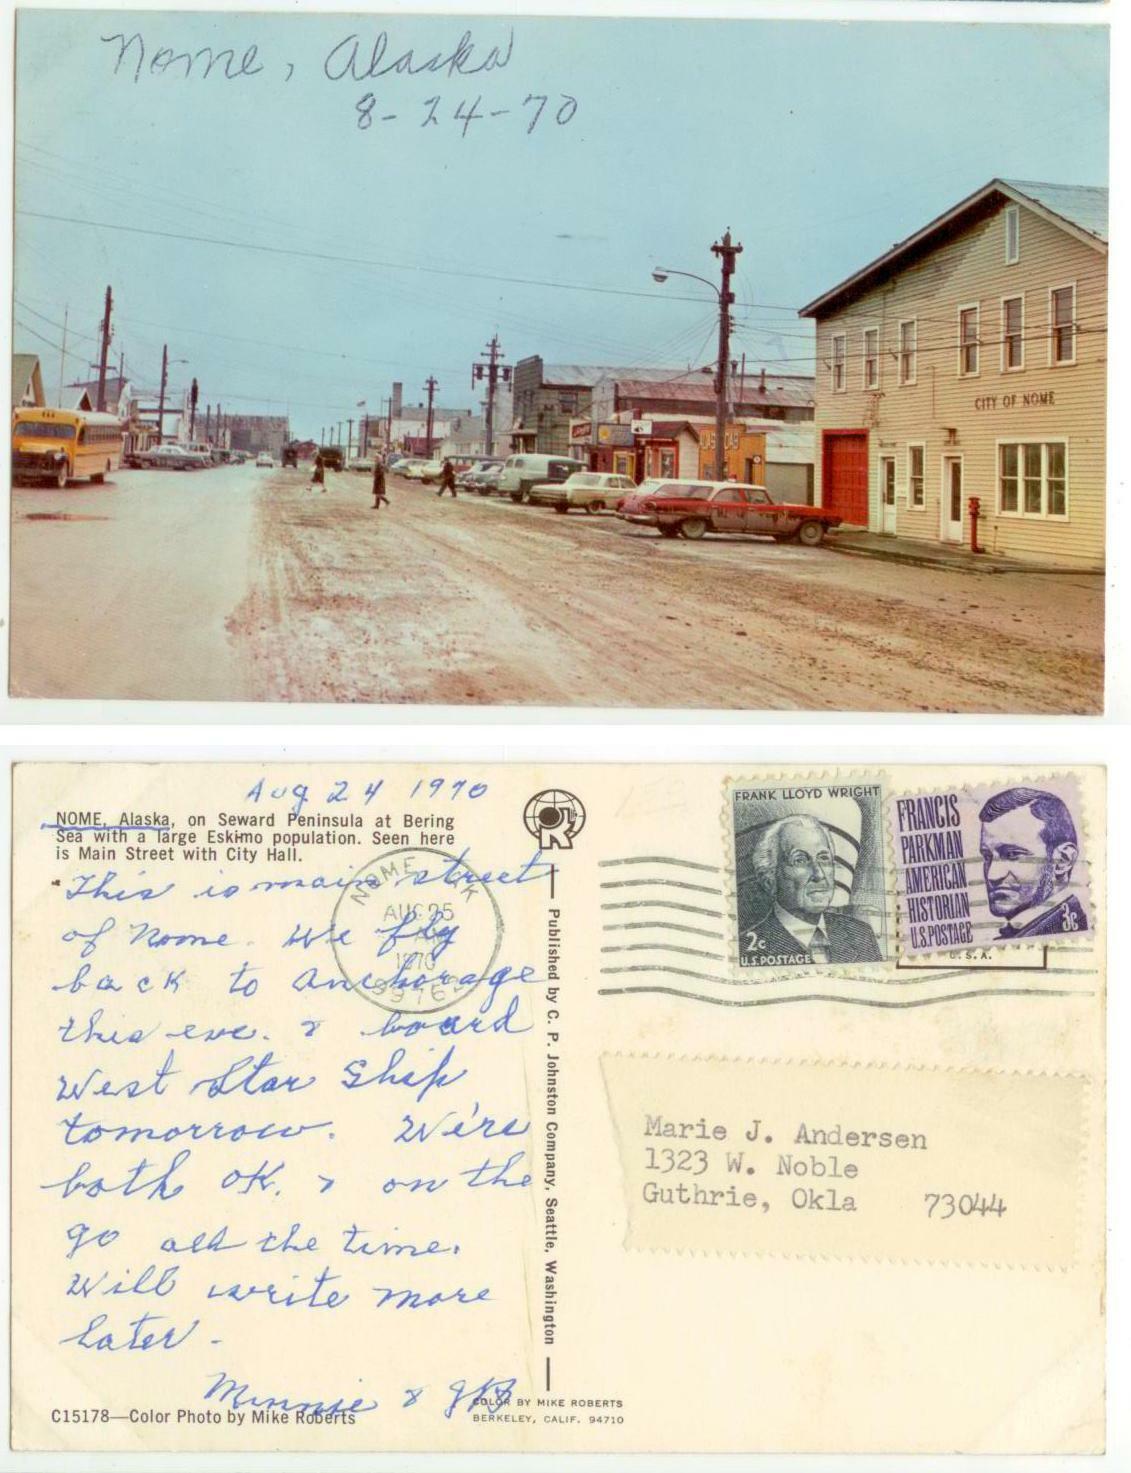 Nome, Alaska
8-24-70
CITY OF NOME
Aug 24 1970
NOME, Alaska, on Seward Peninsula at Bering
Sea with a large Eskimo population. Seen here
is Main Street with City Hall.
This is main street
of Nome. We fly
back to Anchorage
this eve. & board
West Star Ship
tomorrow. We're
both OK. & on the
go all the time.
Will write more
later -
Minnie & JB
C15178—Color Photo by Mike Roberts
COLOR BY MIKE ROBERTS
BERKELEY, CALIF. 94710
Published by C. P. Johnston Company, Seattle, Washington
NOME
AUG 25
1970
FRANK LLOYD WRIGHT
2c
U.S. POSTAGE
FRANCIS
PARKMAN
AMERICAN
HISTORIAN
U.S. POSTAGE
3c
U.S.A.
Marie J. Andersen
1323 W. Noble
Guthrie, Okla 73044